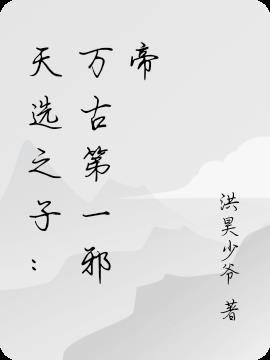 天选之子：
万古第一邪
帝
洪昊少爷 著